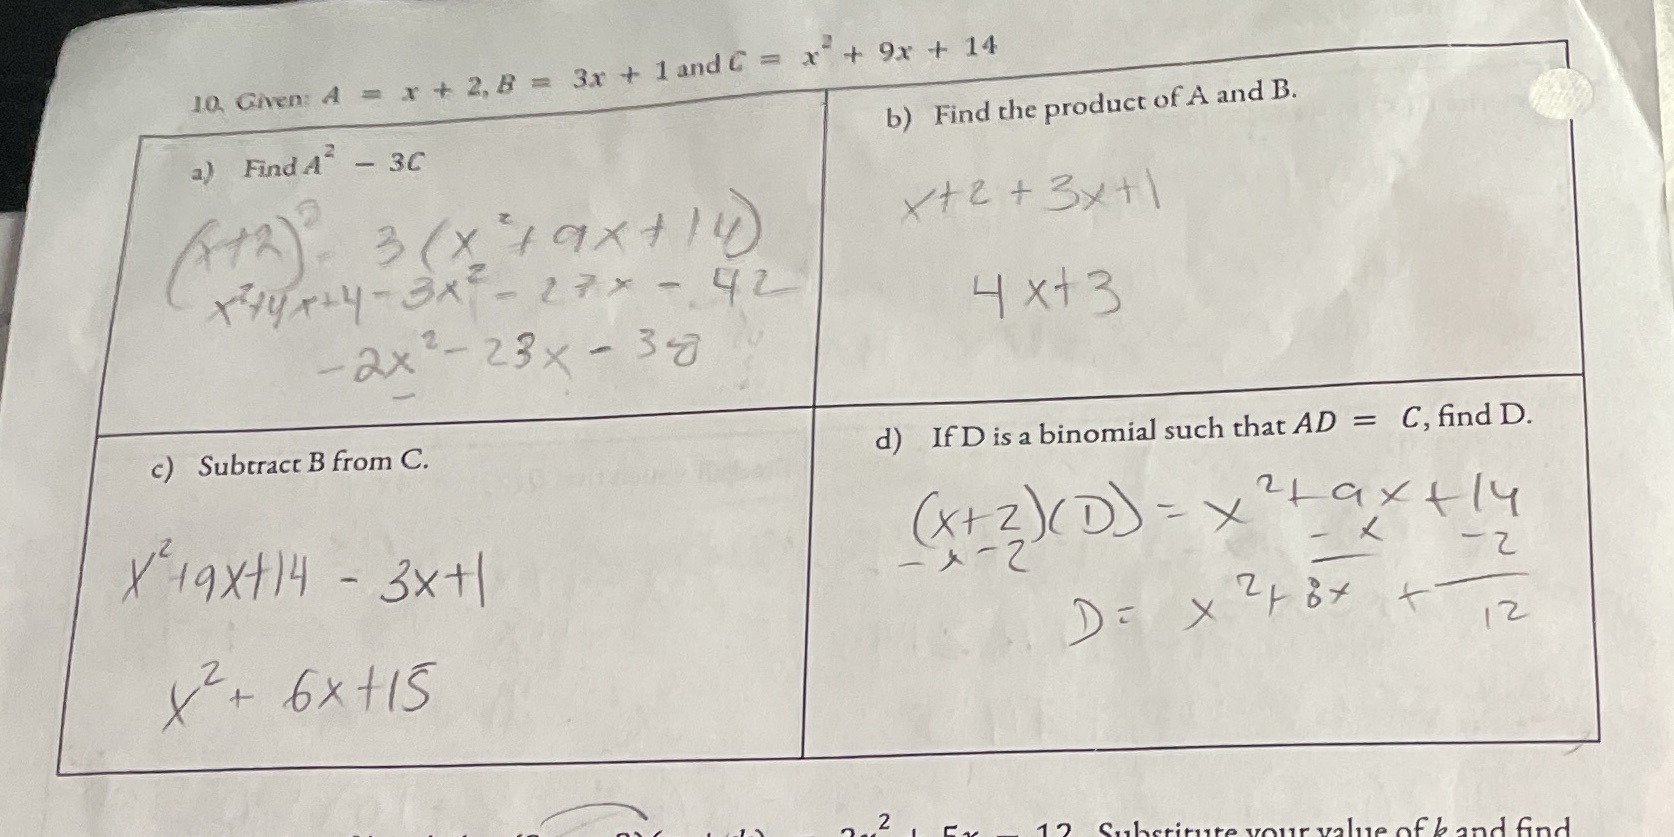 10. Given: A = x + 2, B = 3x + 1 and C = x² + 9x + 14
a) Find A² − 3C
(x+2)² - 3(x²+9x+14)
x²+4x+4-3x²-27x-42
-2x²-23x-38
b) Find the product of A and B.
x+2+3x+1
4x+3
c) Subtract B from C.
x²+9x+14 - 3x+1
x²+6x+15
d) If D is a binomial such that AD = C, find D.
(x+2)(D) = x²+9x+14
-x-2 -x -2
D= x²+8x + 12
5x − 12 Substitute your value of k and find